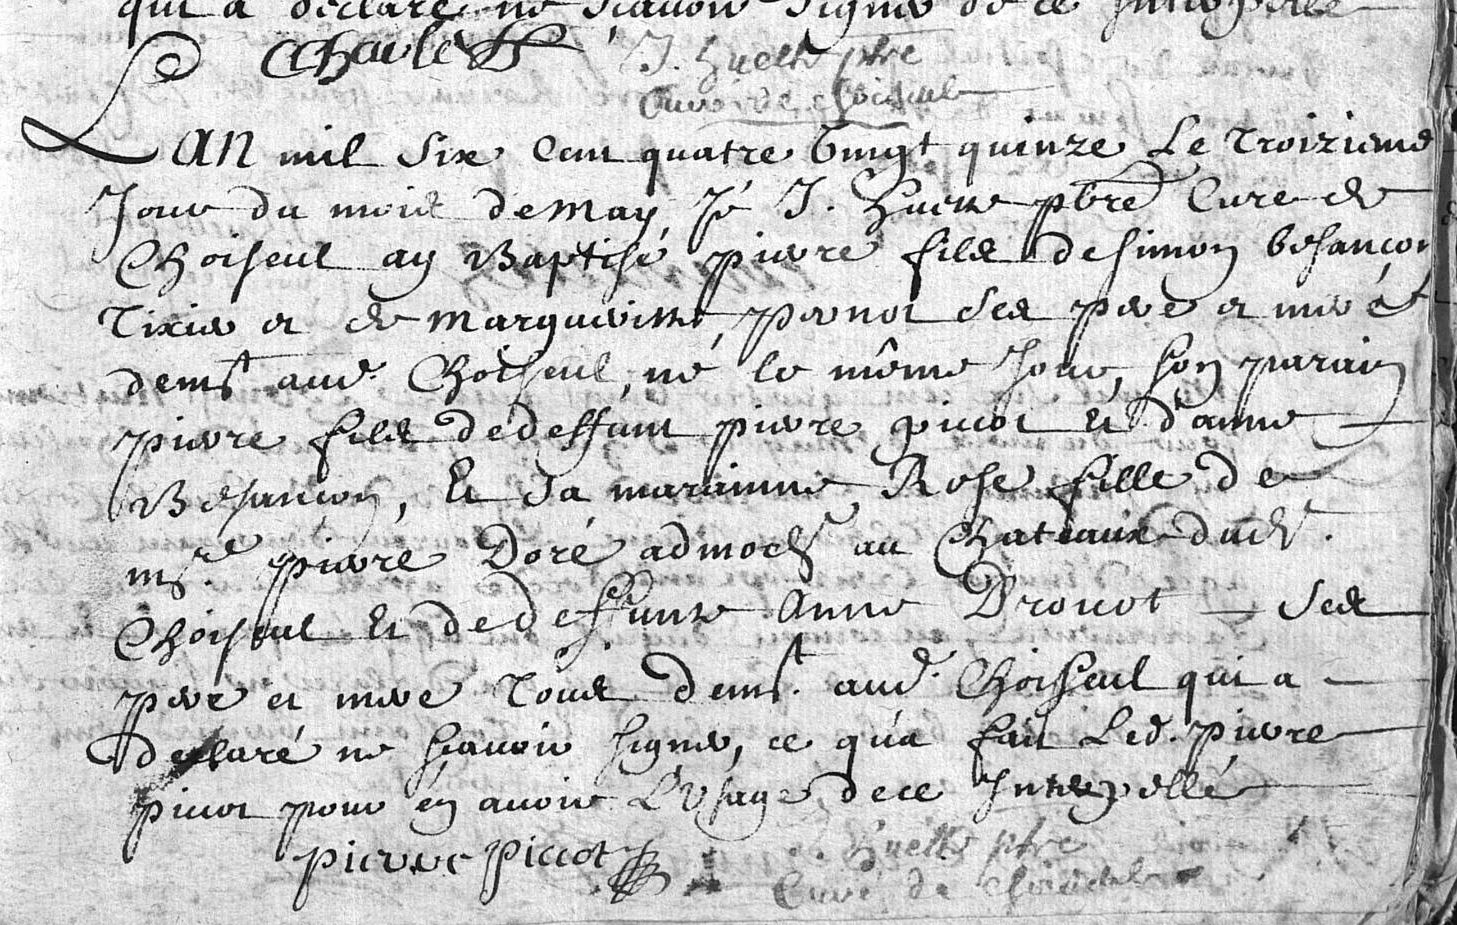 qui a déclaré ne sçauoir signer de ce Interpellé
Charle J. huette ptre
Curé de choiseul
L'an mil six cent quatre vingt quinze Le troizieme
Jour du mois de may Je J. huette pbre Cure de
Choiseul ay Baptisé pierre fils de simon besançon
Tixier et de margueritte pernot ses pere et mere
demt aud. Choiseul, né le même Jour, son parain
pierre fils de deffunt pierre piccot Et d'anne
Besancon, Et sa marainne Rose fille de
mre. pierre Doré admodr au Chateaux dud.
Choiseul Et de deffunte Anne Drouot ses
pere et mere Tous demt. aud. Choiseul qui a
declaré ne sçauoir signer, ce qu'a fait Led. pierre
piccot pour en auoir L'Vsage, de ce Interpellé
pierre piccot J. huette ptre
Curé de choiseul